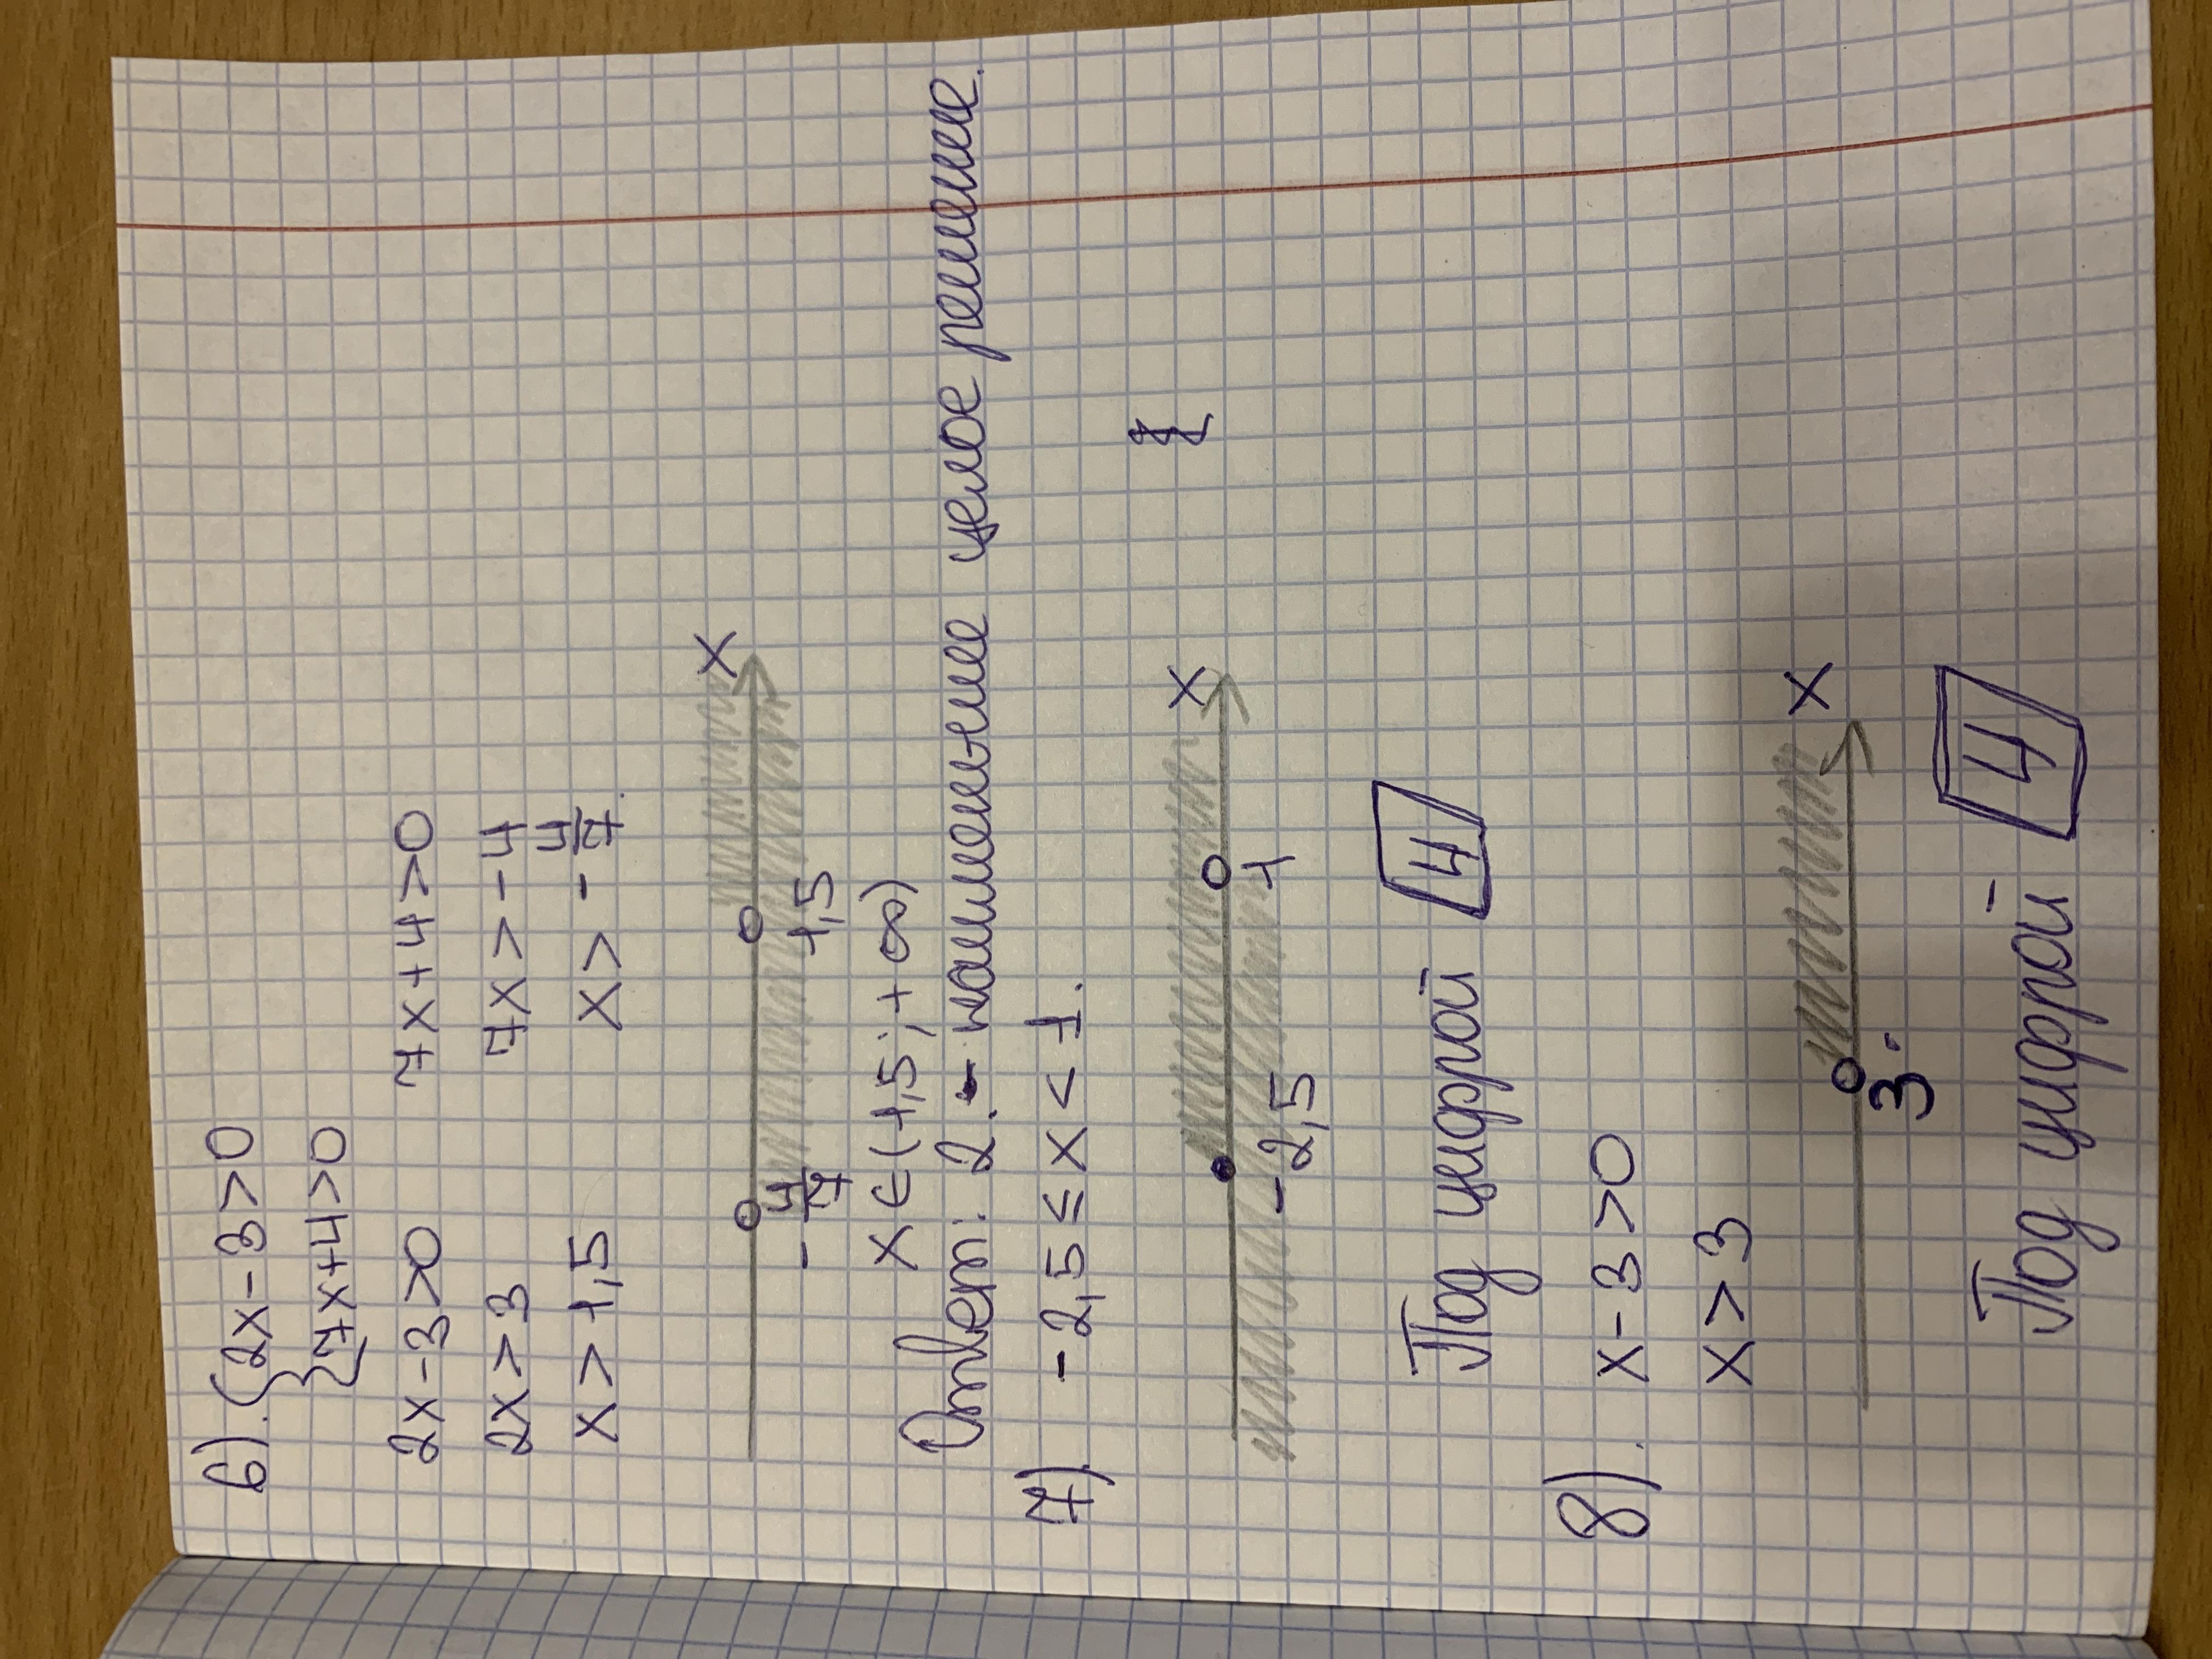 6). { 2x-3>0
7x+4>0
2x-3>0 7x+4>0
2x>3 7x>-4
x>1,5 x>-4/7.
x
-4/7 1,5
x∈(1,5;+∞)
Ответ: 2.- наименьшее целое решение.
7) -2,5≤x<1.
x
-2,5 1
Под цифрой 4
8). x-3>0
x>3
x
3.
Под цифрой - 4